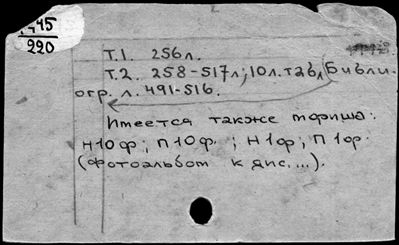 445
220
Т.1. 256л.
Т.2. 258-517л; 10л. табл, Библи-
огр. л. 491-516.
Имеется также ториша:
Н10ф; П10ф.; Н1ф; П1ор.
(Фотоальбом к дис....).